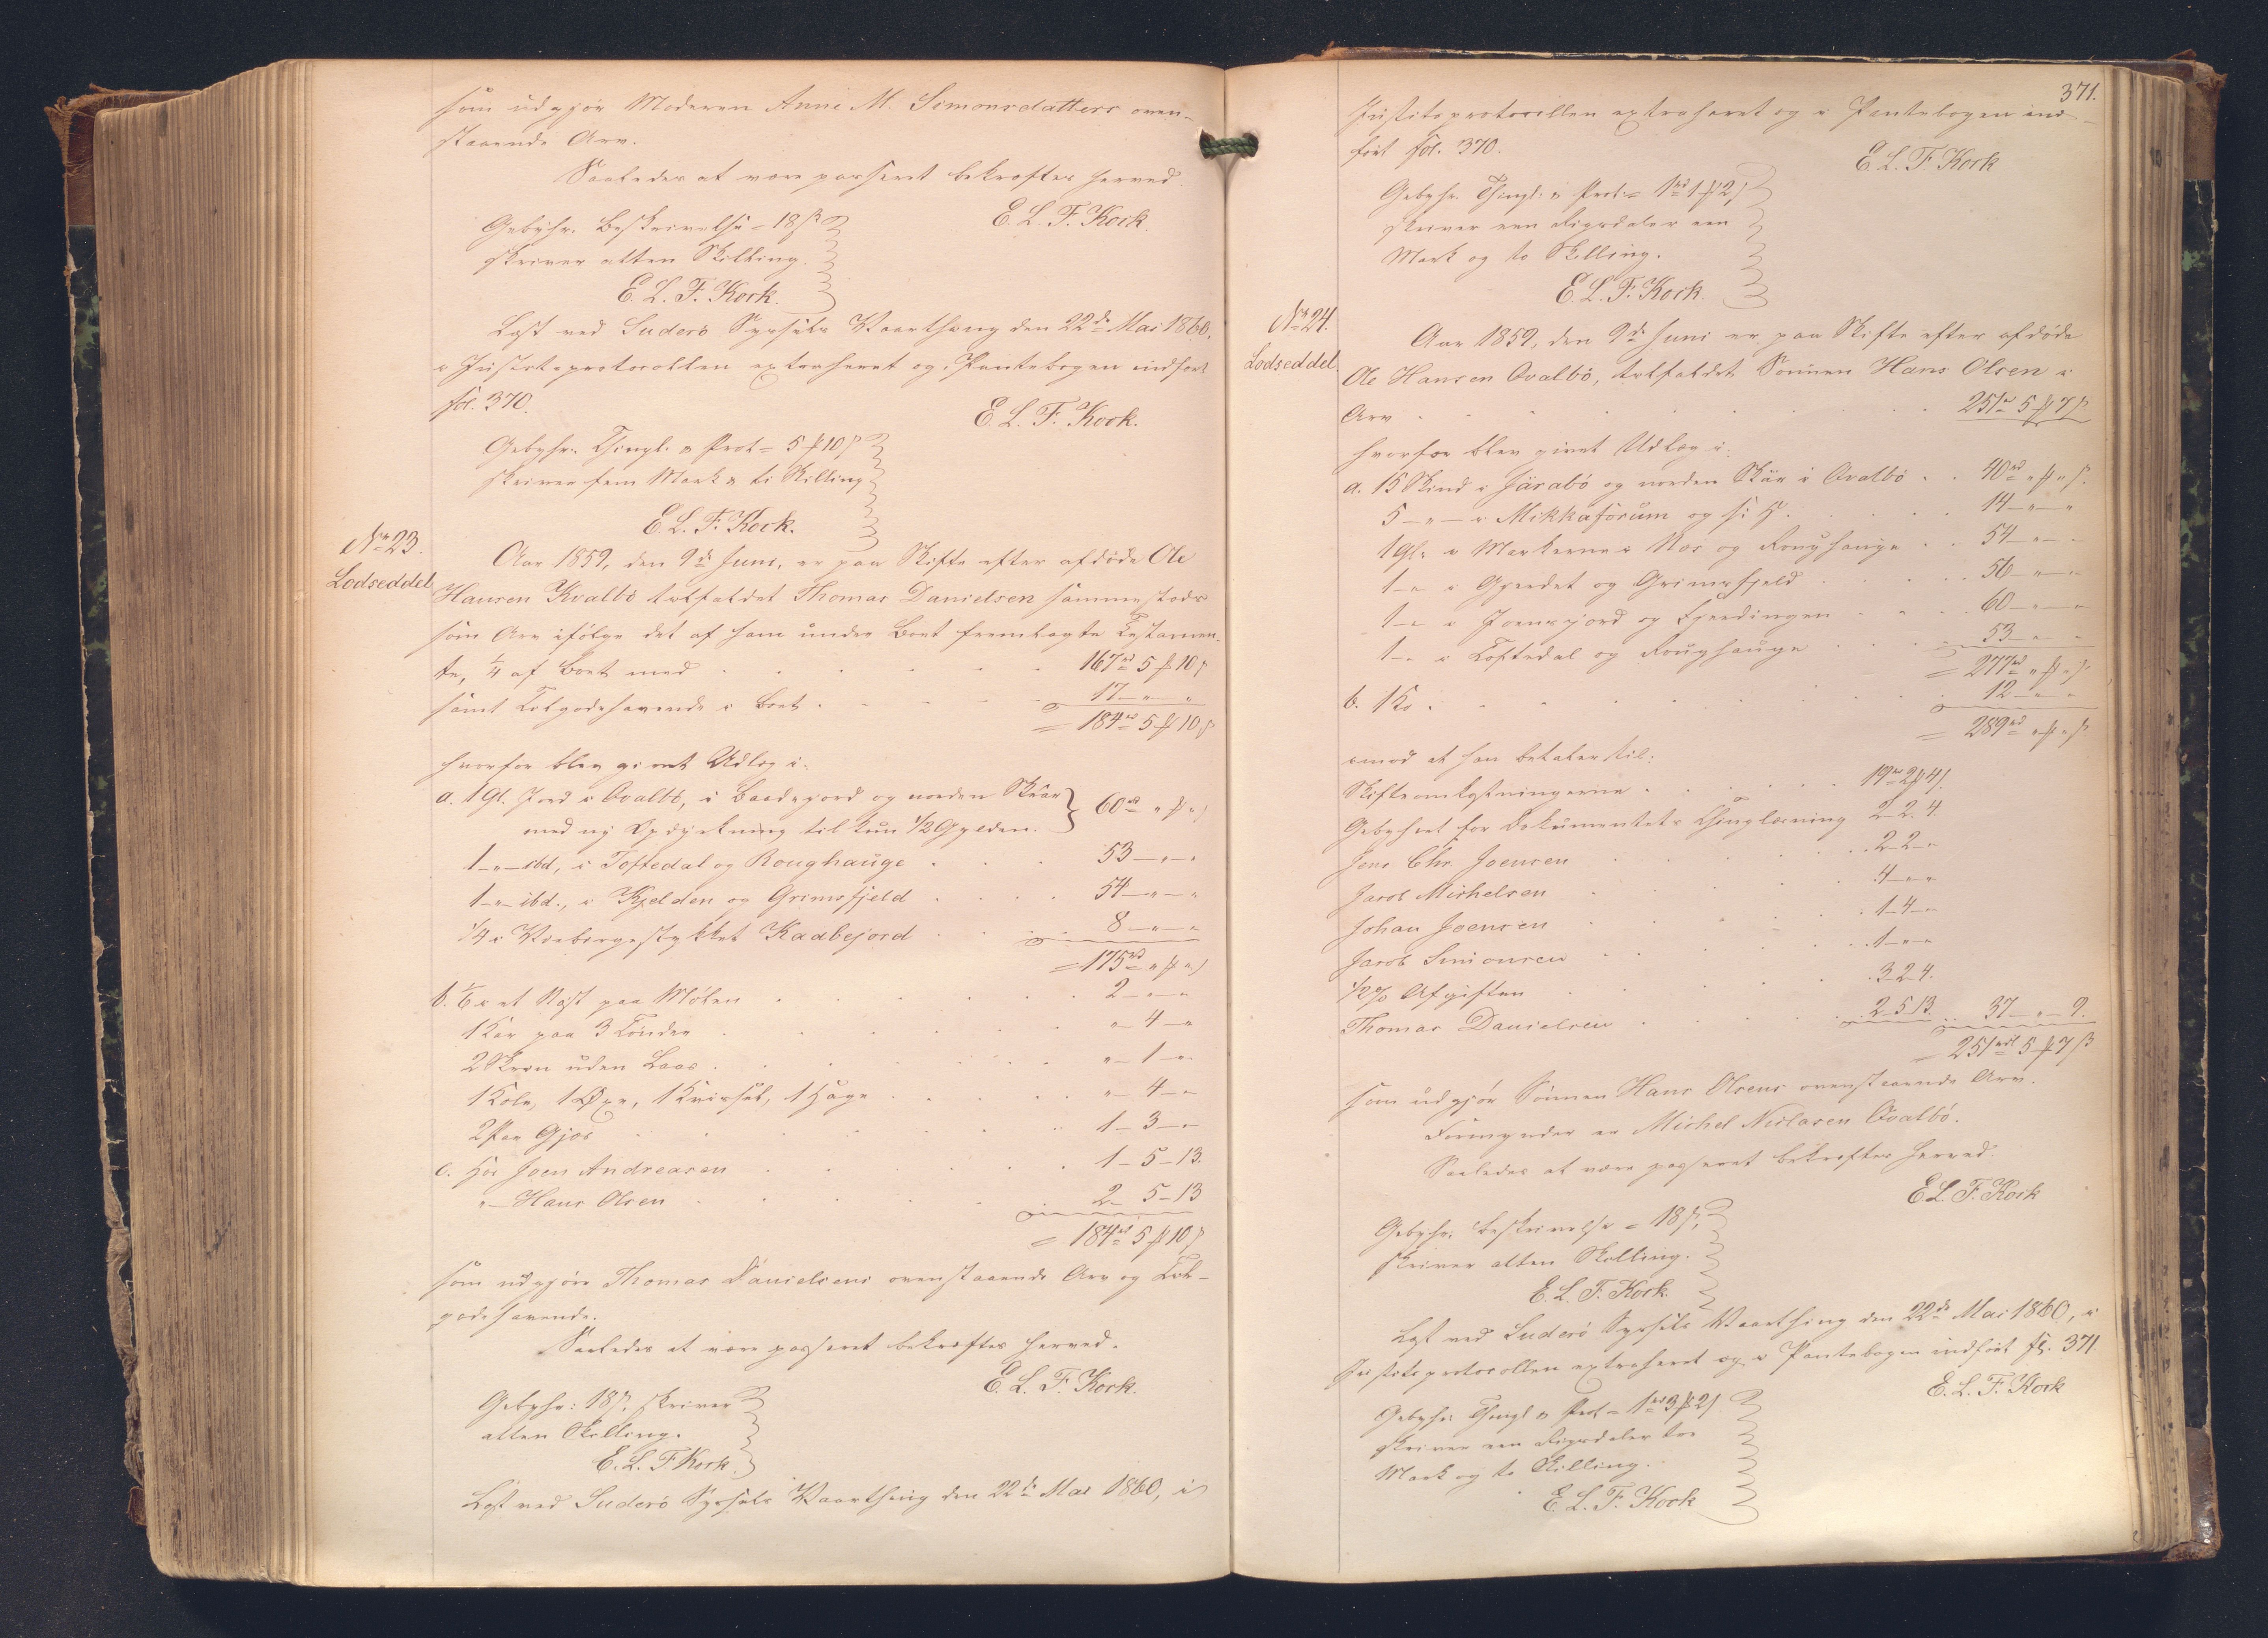 som udgjør Moderen Anne M. Simonsdatters oven-
staaende Arv.
Saaledes at være passeret bekræftes herved.
E. L. F. Kock.
Gebyhr. Beskrivelse = 18 ß
skriver atten Skilling.
E. L. F. Kock.
Læst ved Suderø Syssels Vaarthing den 22de Mai 1860,
i Justitsprotocollen extraheret og i Pantebogen indført
fol. 370.
E. L. F. Kock.
Gebyhr. Thingl. & Prot = 5 # 10 ß
skriver fem Mark & ti Skilling
E. L. F. Kock.
No 23.
Lodseddel
Aar 1859, den 9de Juni, er paa Skifte efter afdøde Ole
Hansen Kvalbø tilfaldet Thomas Danielsen sammesteds
som Arv ifølge det af ham under Boet fremlagte Testamen-
te, 1/4 af Boet med 167rd 5 # 10 ß
samt Tilgodehavende i Boet 17 – „ – „
= 184rd 5 # 10 ß
hvorfor blev givet Udlæg i:
a. 1 Gl. Jord i Qvalbø, i Baadsgjord og norden Skaar
med ny Opdyrkning til kun 1/2 Gylden. } 60rd „ # „ ß
1 – „ – ibd, i Toftedal og Roughauge 53 – „ – „
1 – „ – ibd., i Kjelden og Grimsfjeld 54 – „ – „
1/4 i Kaabejord 8 – „ – „
= 175rd „ # „ ß
b. 1/6 i et Nøst paa Mølen 2 – „ – „
1 Kar paa 3 Tønder „ – 4 – „
2 Skrin uden Laas „ – 1 – „
1 Kole, 1 Øxe, 1 1 Hage „ – 4 – „
2 Par Gjos 1 – 3 – „
c. Hos Joen Andreasen 1 – 5 – 13.
„ – Hans Olsen 2 – 5 – 13
= 184rd 5 # 10 ß
som udgjøre Thomas Danielsens ovenstaaende Arv og Til-
godehavende.
Saaledes at være passeret bekræftes herved.
E. L. F. Kock.
Gebyhr: 18 ß, skriver
atten Skilling.
E. L. F. Kock.
Læst ved Suderø Syssels Vaarthing den 22de Mai 1860, i
371.
Justitsprotocollen extraheret og i Pantebogen ind-
ført fol. 370.
E. L. F. Kock
Gebyhr. Thingl. & Prot. = 1rd 1 # 2 ß
skriver een Rigsdaler een
Mark og to Skilling.
E. L. F. Kock.
No 24.
Lodseddel.
Aar 1859, den 9de Juni er paa Skifte efter afdøde
Ole Hansen Qvalbø, tilfaldet Sønnen Hans Olsen i
Arv 251rd 5 # 7 ß
hvorfor blev givet Udlæg i:
a. 15 Skind i Jarabø og norden Skaar i Qvalbø 40rd „ # „ ß.
5 – „ – i Mikkaforum og 14 – „ – „
1 Gl. i Markerne Nos og Roughauge 54 – „ – „
1 – „ i Gjerdet og Grimsfjeld 56 – „ – „
1 – „ i Joensgjord og Fjerdingen 60 – „ – „
1 – „ i Toftedal og Roughauge 53 – „ – „
= 277rd „ # „ ß.
b. 1 Ko 12 – „ – „
= 289rd „ # „ ß.
imod at han betaler til:
Skifteomkostningerne 19rd 2 # 4 ß.
Gebyhret for Dokumentets Thinglæsning 2 – 2. 4.
Jens Chr. Joensen 2 – 2 – „
Jacob Michelsen 4 – „ – „
Johan Joensen 1 – 4 – „
Jacob Simonsen 1 – „ – „
1/2 % Afgiften 3 – 2 – 4.
Thomas Danielsen 2 – 5 – 13. 37 – „ – 9.
= 251rd 5 # 7 ß
som udgjør Sønnen Hans Olsens ovenstaaende Arv.
Formynder er Michel Niclasen Qvalbø.
Saaledes at være passeret bekræftes herved.
E. L. F. Kock
Gebyhr: Beskrivelse = 18 ß,
skriver atten Skilling.
E. L. F. Kock.
Læst ved Suderø Syssels Vaarthing den 22de Mai 1860, i
Justitsprotocollen extraheret og i Pantebogen indført fol. 371
E. L. F. Kock
Gebyhr: Thingl & Prot = 1rd 3 # 2 ß
skriver een Rigsdaler tre
Mark og to Skilling.
E. L. F. Kock